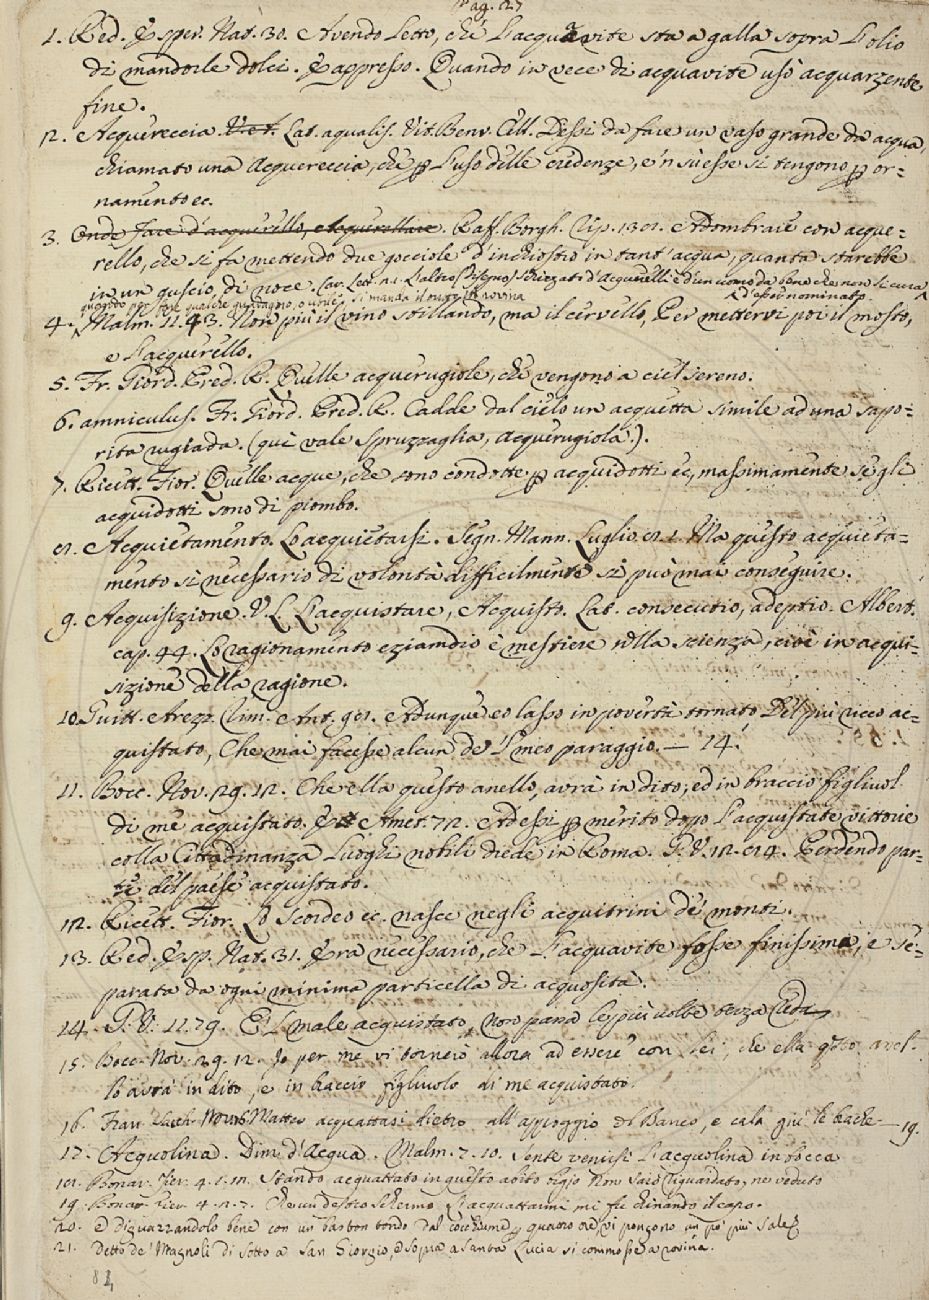 Pag. 27
1. Red. Esper. Nat. 30. Avendo letto, che l'acquavite sta a galla sopra l'olio
di mandorle dolci. E appresso. Quando in vece di acquavite usò acquarzente
fine.
12. Acquereccia. Lat. aqualis. Vit. Benv. Cell. Dessi da fare un vaso grande da acqua,
chiamato una Acquereccia, che p l'uso delle credenze, e 'n su esse si tengono p or=
namento ec.
3. Onde fare d'acquerello, Acquerellare. Raff. Borgh. Rip. 131. Adombrare con acque=
rello, che si fa mettendo due gocciole d'inchiostro in tant'acqua, quanta starebbe
in un guscio di noce.
4. Malm. 11. 43. Non più il vino stillando, ma il cervello, Per mettervi poi il mosto,
e l'acquerello.
5. Fr. Giord. Pred. R. Quelle acquerugiole, che vengono a ciel sereno.
6. amniculus. Fr. Giord. Pred. R. Cadde dal cielo un acquetta simile ad una sapo=
rita rugiada. (qui vale Spruzzaglia, Acquerugiola.).
7. Ricett. Fior. Quelle acque, che sono condotte p acquidotti ec, massimamente se gli
acquidotti sono di piombo.
8. Acquietamento. Lo acquietarsi. Segn. Mann. Luglio. 8. 1. Ma questo acquieta=
mento sì necessario di volontà difficilmente si può mai conseguire.
9. Acquisizione. V. L. L'acquistare, Acquisto. Lat. consecutio, adeptio. Albert.
cap. 44. Lo ragionamento eziamdio è mestiere nella scienza, cioè in acqui=
sizione della ragione.
10. Guitt. Arezz. Rim. Ant. 98. Adunque eo lasso in povertà tornato Del più ricco ac=
quistato, Che mai facesse alcun de' l meo paraggio. — 14.
11. Bocc. Nov. 29. 12. Che ella questo anello, avrà in dito, ed in braccio figliuol
di me acquistato. E Amet. 72. Ad essi p merito dopo l'acquistate vittorie
colla Cittadinanza luoghi nobili diede in Roma. G. V. 12. 84. Perdendo par=
te del paese acquistato.
12. Ricett. Fior. Lo Scordeo ec. nasce negli acquitrini de' monti.
13. Red. Esp. Nat. 31. Era necessario, che l'acquavite fosse finissima, e se=
parata da ogni minima particella di acquosità.
14. G. V. 11. 79. E 'l male acquistato, non passa le più volte terza redi
15. Bocc. Nov. 29. 12. Io per me vi tornerò allora ad essere con lei, che ella qsto anel=
lo avrà in dito, e in braccio figliuolo di me acquistato.
16. Fran. Sacch. Nov. Matteo acquattasi dietro all'appoggio del Banco, e cala giù le brache — 19.
17. Acquolina. Dim. d'Acqua. Malm. 7. 10. Sente venirsi l'acquolina in bocca
18. Bonar. Fier. 4. 1. 11. Stando acquattato in questo abito bigio Non sarò riguardato, nè veduto
19. Bonar. Fier. 4. 2. 7. Schermo L'acquattarmi mi fu chinando il capo.
20. E diguazzandolo bene con un baston tondo dal cocchiume p quattro vi pongono un po' più Sale
21. Detto de' Magnoli di sotto a San Giorgio, e sopra a Santa Lucia si commosse a rovina.